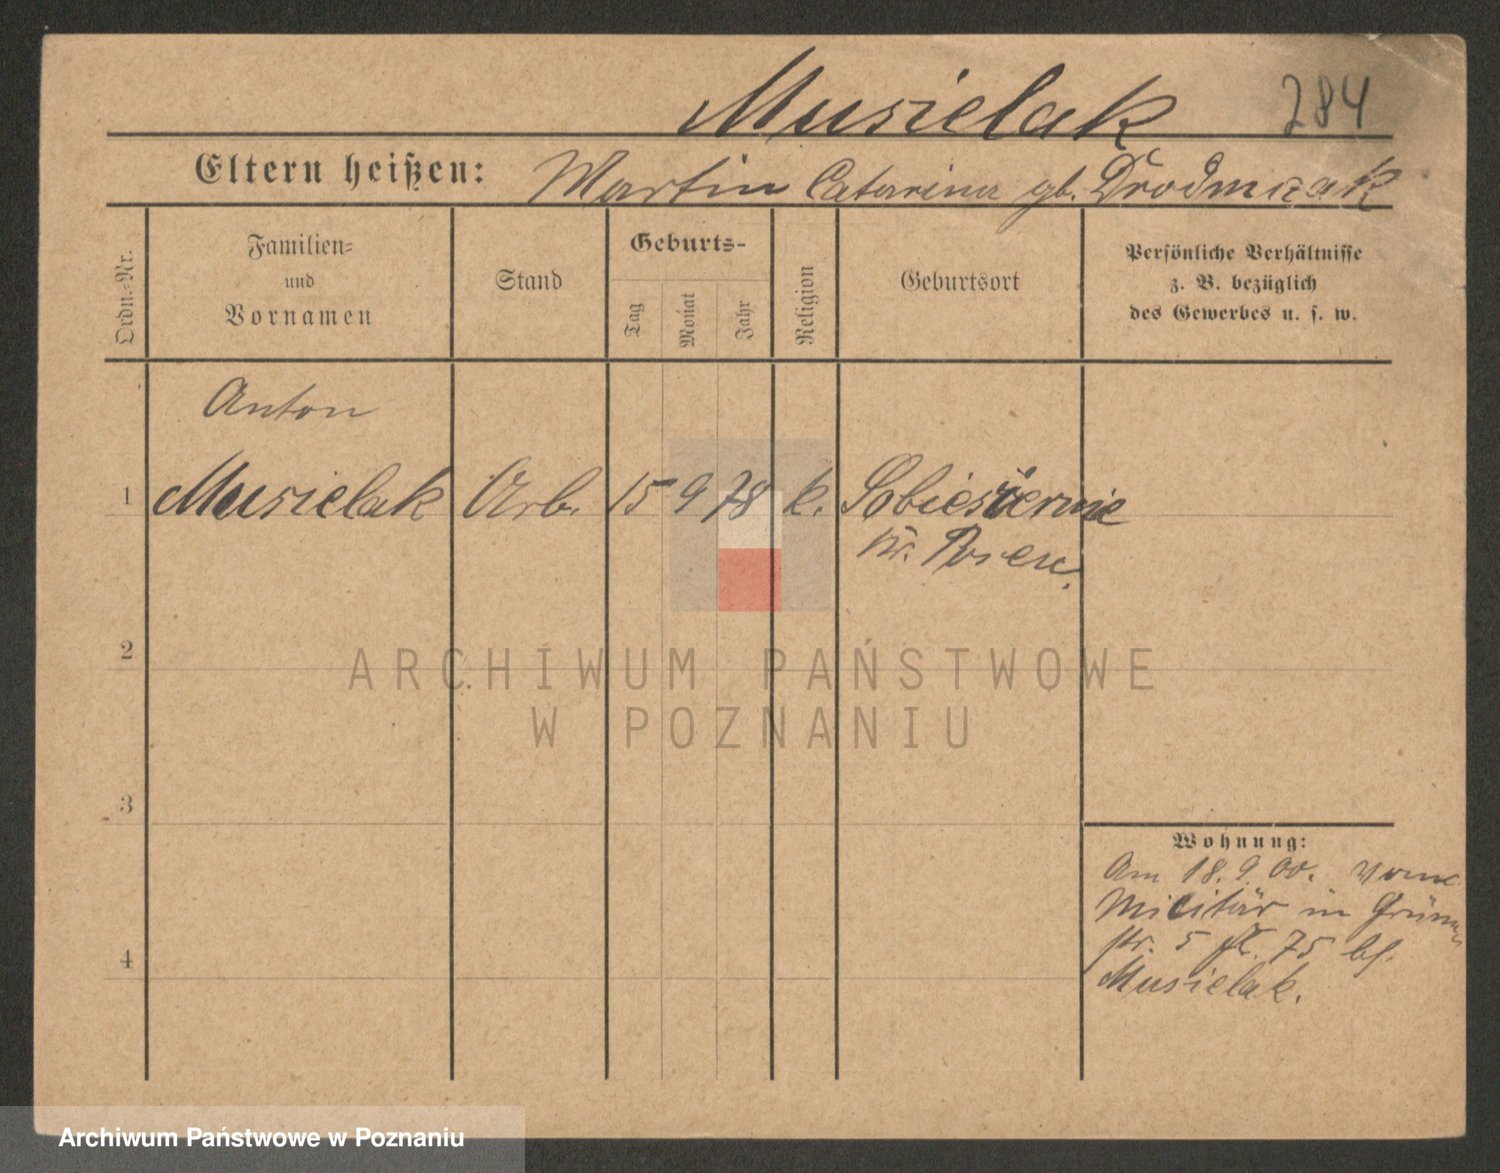 Musielak 284
Eltern heißen: Martin Catarina gb.
Ordn.-Nr.
Familien-
und
Vornamen
Stand
Geburts-
Tag
Monat
Jahr
Religion
Geburtsort
Persönliche Verhältnisse
z. B. bezüglich
des Gewerbes u. s. w.
Anton
1 Musielak Arb. 15 9 78 k. Sobiesiernie
Kr. Posen.
2
3
4
Wohnung:
Am 18.9.00. vom
Militär in
str. 5 75 bf.
Musielak.
ARCHIWUM PAŃSTWOWE
W POZNANIU
Archiwum Państwowe w Poznaniu